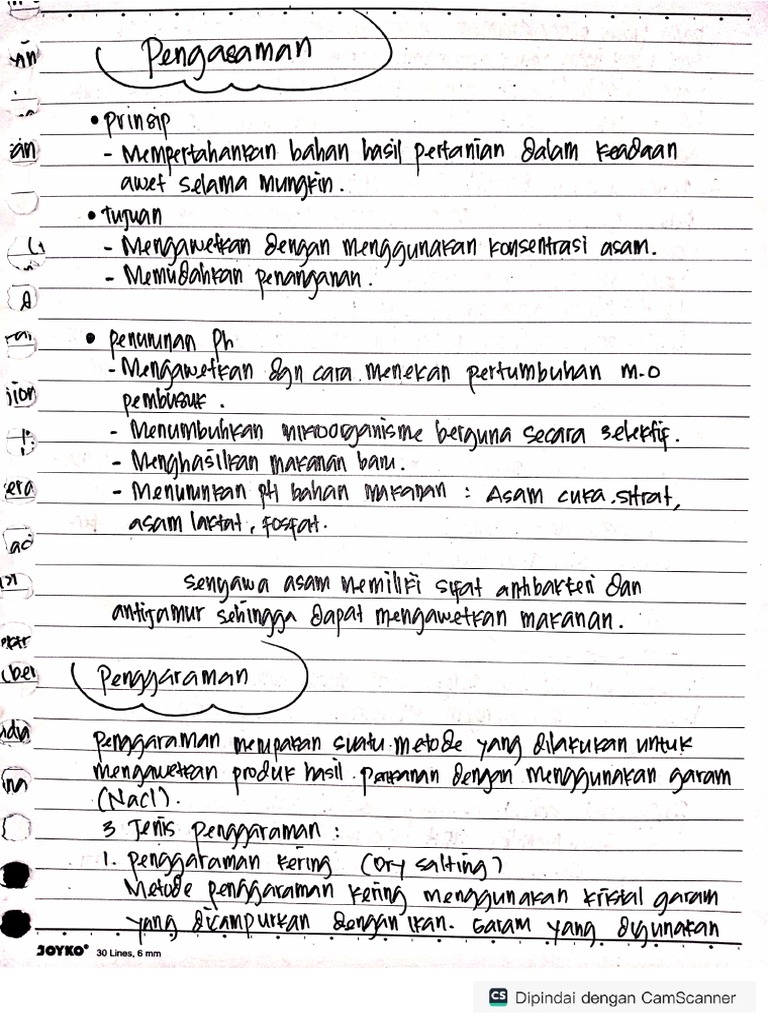 Pengasaman
• Prinsip
- Mempertahankan bahan hasil pertanian dalam keadaan
awet selama mungkin.
• Tujuan
- Mengawetkan dengan menggunakan konsentrasi asam.
- Memudahkan penanganan.
• Penurunan Ph
- Mengawetkan dgn cara menekan pertumbuhan m.o
pembusuk.
- Menumbuhkan mikroorganisme berguna secara selektif.
- Menghasilkan makanan baru.
- Menurunkan pH bahan makanan : Asam cuka, sitrat,
asam laktat, fosfat.
senyawa asam memiliki sifat antibakteri dan
antijamur sehingga dapat mengawetkan makanan.
Penggaraman
Penggaraman merupakan suatu metode yang dilakukan untuk
mengawetkan produk hasil perikanan dengan menggunakan garam
(NaCl).
3 Jenis penggaraman :
1. Penggaraman kering (Dry salting)
Metode penggaraman kering menggunakan kristal garam
yang dicampurkan dengan ikan. Garam yang digunakan
JOYKO® 30 Lines, 6 mm
CS Dipindai dengan CamScanner